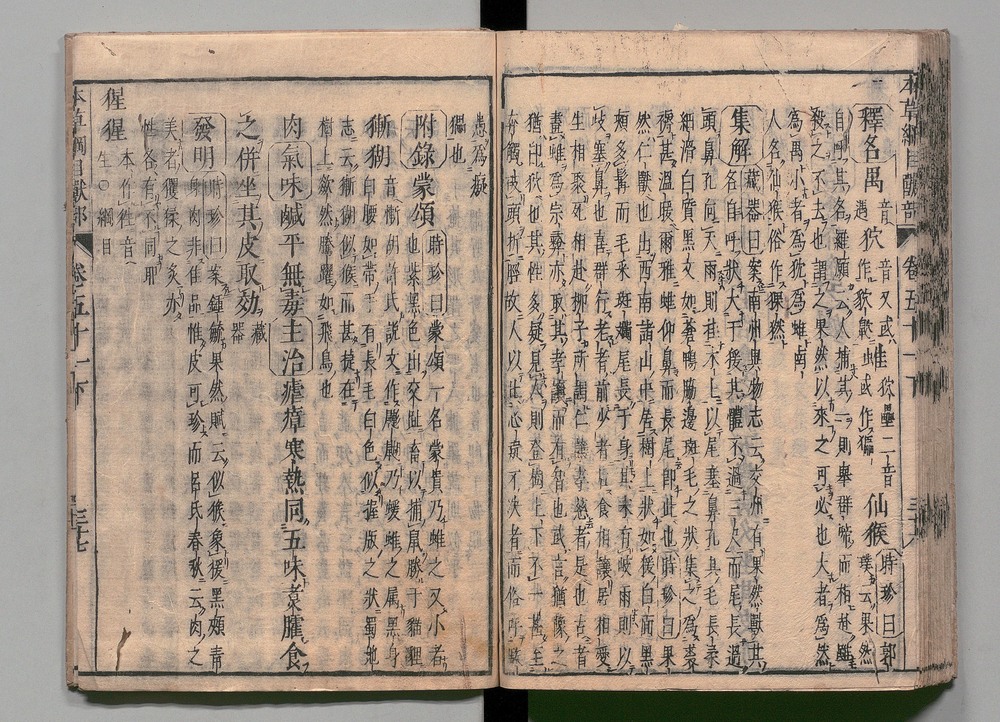 本草綱目獸部 卷五十一下
釋名禺 音遇 狖 音又或作貁 蜼 狖壘二音或作㹳 仙猴 時珍曰郭璞云果然
自呼其名羅願云人捕其一則舉群啼而相赴雖
殺之不去也謂之果然以來之可必也大者為然
為禺小者為狖為蜼南
人名仙猴俗作猓然
集解 藏器曰案南州異物志云交州有果然獸其
名自呼狀大于猨其體不過三尺而尾長過
頭鼻孔向天雨則挂木上以尾塞鼻孔其毛長柔
細滑白質黑文如蒼鴨脇邊斑毛之狀集之為裘
褥甚溫暖爾雅蜼仰鼻而長尾即此也時珍曰果
然仁獸也出西南諸山中居樹上狀如猨白面黑
頰多髯而毛采斑斕尾長于身其末有岐雨則以
岐塞鼻也喜群行老者前少者後食相讓居相愛
生相聚死相赴柳子所謂仁讓孝慈者是也古者
畫蜼為宗彝亦取其孝讓而有智也或云猶豫之
猶即狖也其性多疑見人則登樹上下不一甚至
奔觸破頭折脛故人以比心疑不決者而俗呼騃
愚為癡
獼也
附錄 蒙頌 時珍曰蒙頌一名蒙貴乃蜼之又小者
也紫黑色出交趾畜以捕鼠勝于猫貍
獑猢 音慚胡許氏說文作䶂𪕱乃蝯蜼之属黑身
白腰如帶手有長毛白色似握版之狀蜀地
志云獑猢似猴而甚捷在
樹上歘然騰躍如飛鳥也
肉 氣味 鹹平無毒 主治 瘧瘴寒熱同五味煮臛食
之併坐其皮取効 藏器
發明 時珍曰案鍾毓果然賦云似猴象猨黑頰青
身肉非佳品惟皮可珍而呂氏春秋云肉之
美者玃猱之炙亦
性各有不同耶
猩猩 本作狌音
生○綱目
本草綱目獸部 卷五十一下 三十七